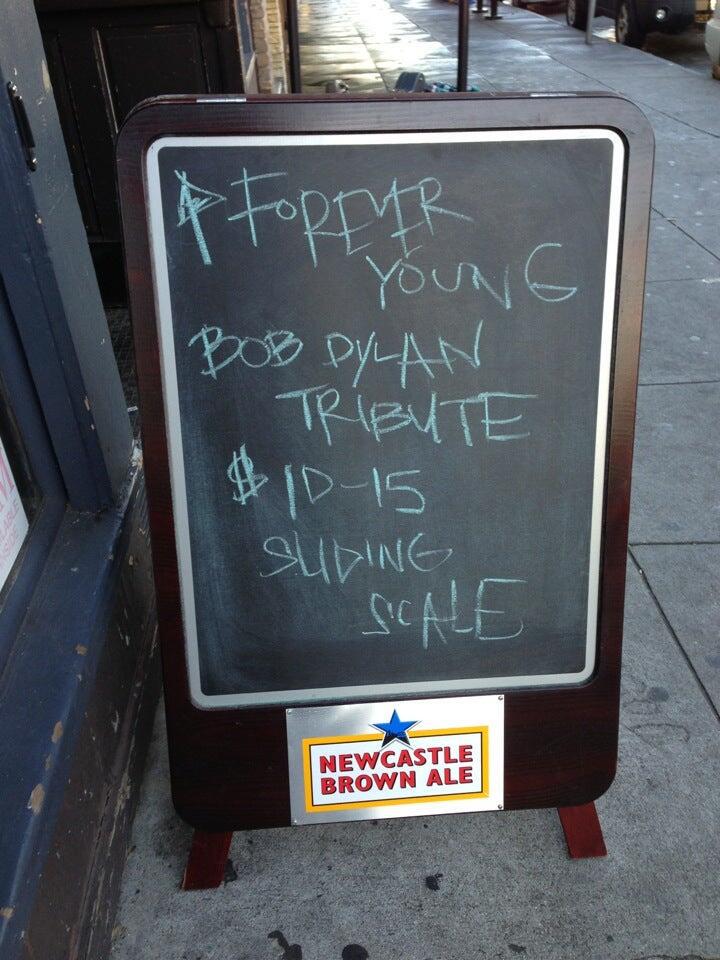 FOREVER
YOUNG
BOB DYLAN
TRIBUTE
$10-15
SLIDING
SCALE
NEWCASTLE
BROWN ALE